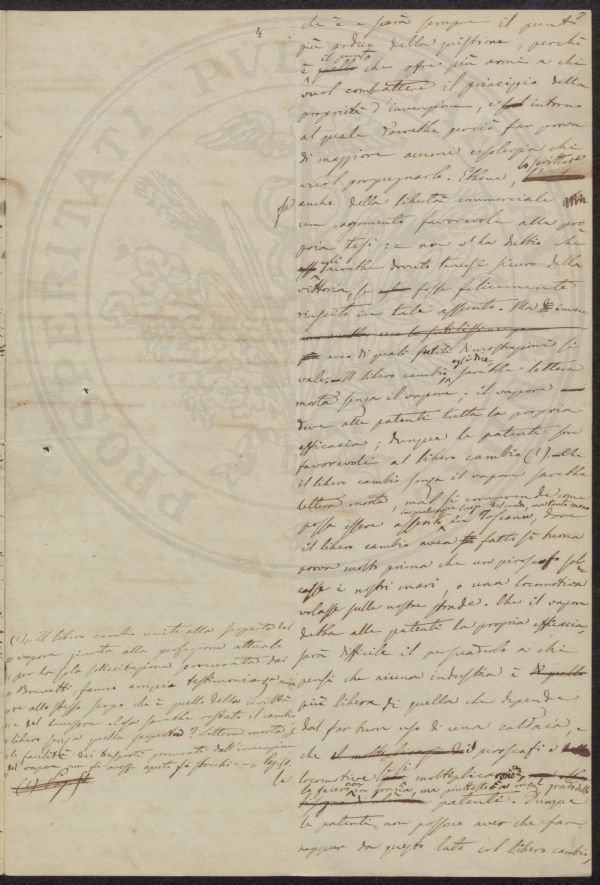 che è e sarà sempre il punto
più arduo della quistione, perchè
è il punto che offre più armi a chi
vuol combattere il principio della
proprietà d'invenzione, e intorno
al quale dovrebbe perciò far prova
di maggiore acume e solerzia chi
vuol propugnarlo. Ebbene, lo scrittore
anche della libertà commerciale
un argomento favorevole alla pro
pria tesi: e non v'ha dubbio che
egli sarebbe dovuto tenersi sicuro della
vittoria, se fosse felicemente
riuscito in tale assunto. Ma invece
ecco di quali futili dimostrazioni si
vale. Il libero cambio, egli dice, sarebbe lettera
morta senza il vapore: il vapore
deve alle patenti tutta la propria
efficacia; dunque le patenti son
favorevoli al libero cambio (1). Che
il libero cambio senza il vapore sarebbe
lettera morta, mal si comprende come
possa essere asserito in qualunque luogo del mondo, ma tanto meno in Toscana, dove
il libero cambio avea fatto sì buona
prova molto prima che un piroscafo sol
casse i nostri mari, o una locomotiva
volasse sulle nostre strade. Che il vapore
debba alle patenti la propria efficacia,
sarà difficile il persuaderlo a chi
pensi che niuna industria è
più libera di quella che dipende
dal far buon uso di una caldaia, e
che i piroscafi e
le locomotive si moltiplicarono
lo fecero non in grazia, ma piuttosto a mal grado delle
patenti. Dunque
le patenti non possono aver che fare
neppur da questo lato col libero cambio,
(1) „ Il libero cambio unito alla scoperta del
„ vapore giunto alla perfezione attuale
„ per la sola sollecitazione procurata dai
„ Brevetti fanno ampia testimonianza
„ re allo stesso scopo che è quello della civiltà
„ e del benessere. Cosa sarebbe restato il cambio
„ libero senza quella scoperta? Lettera morta, se
„ le facilità dei trasporti procurati dall'invenzione
„ del vapore non gli avesse aperto